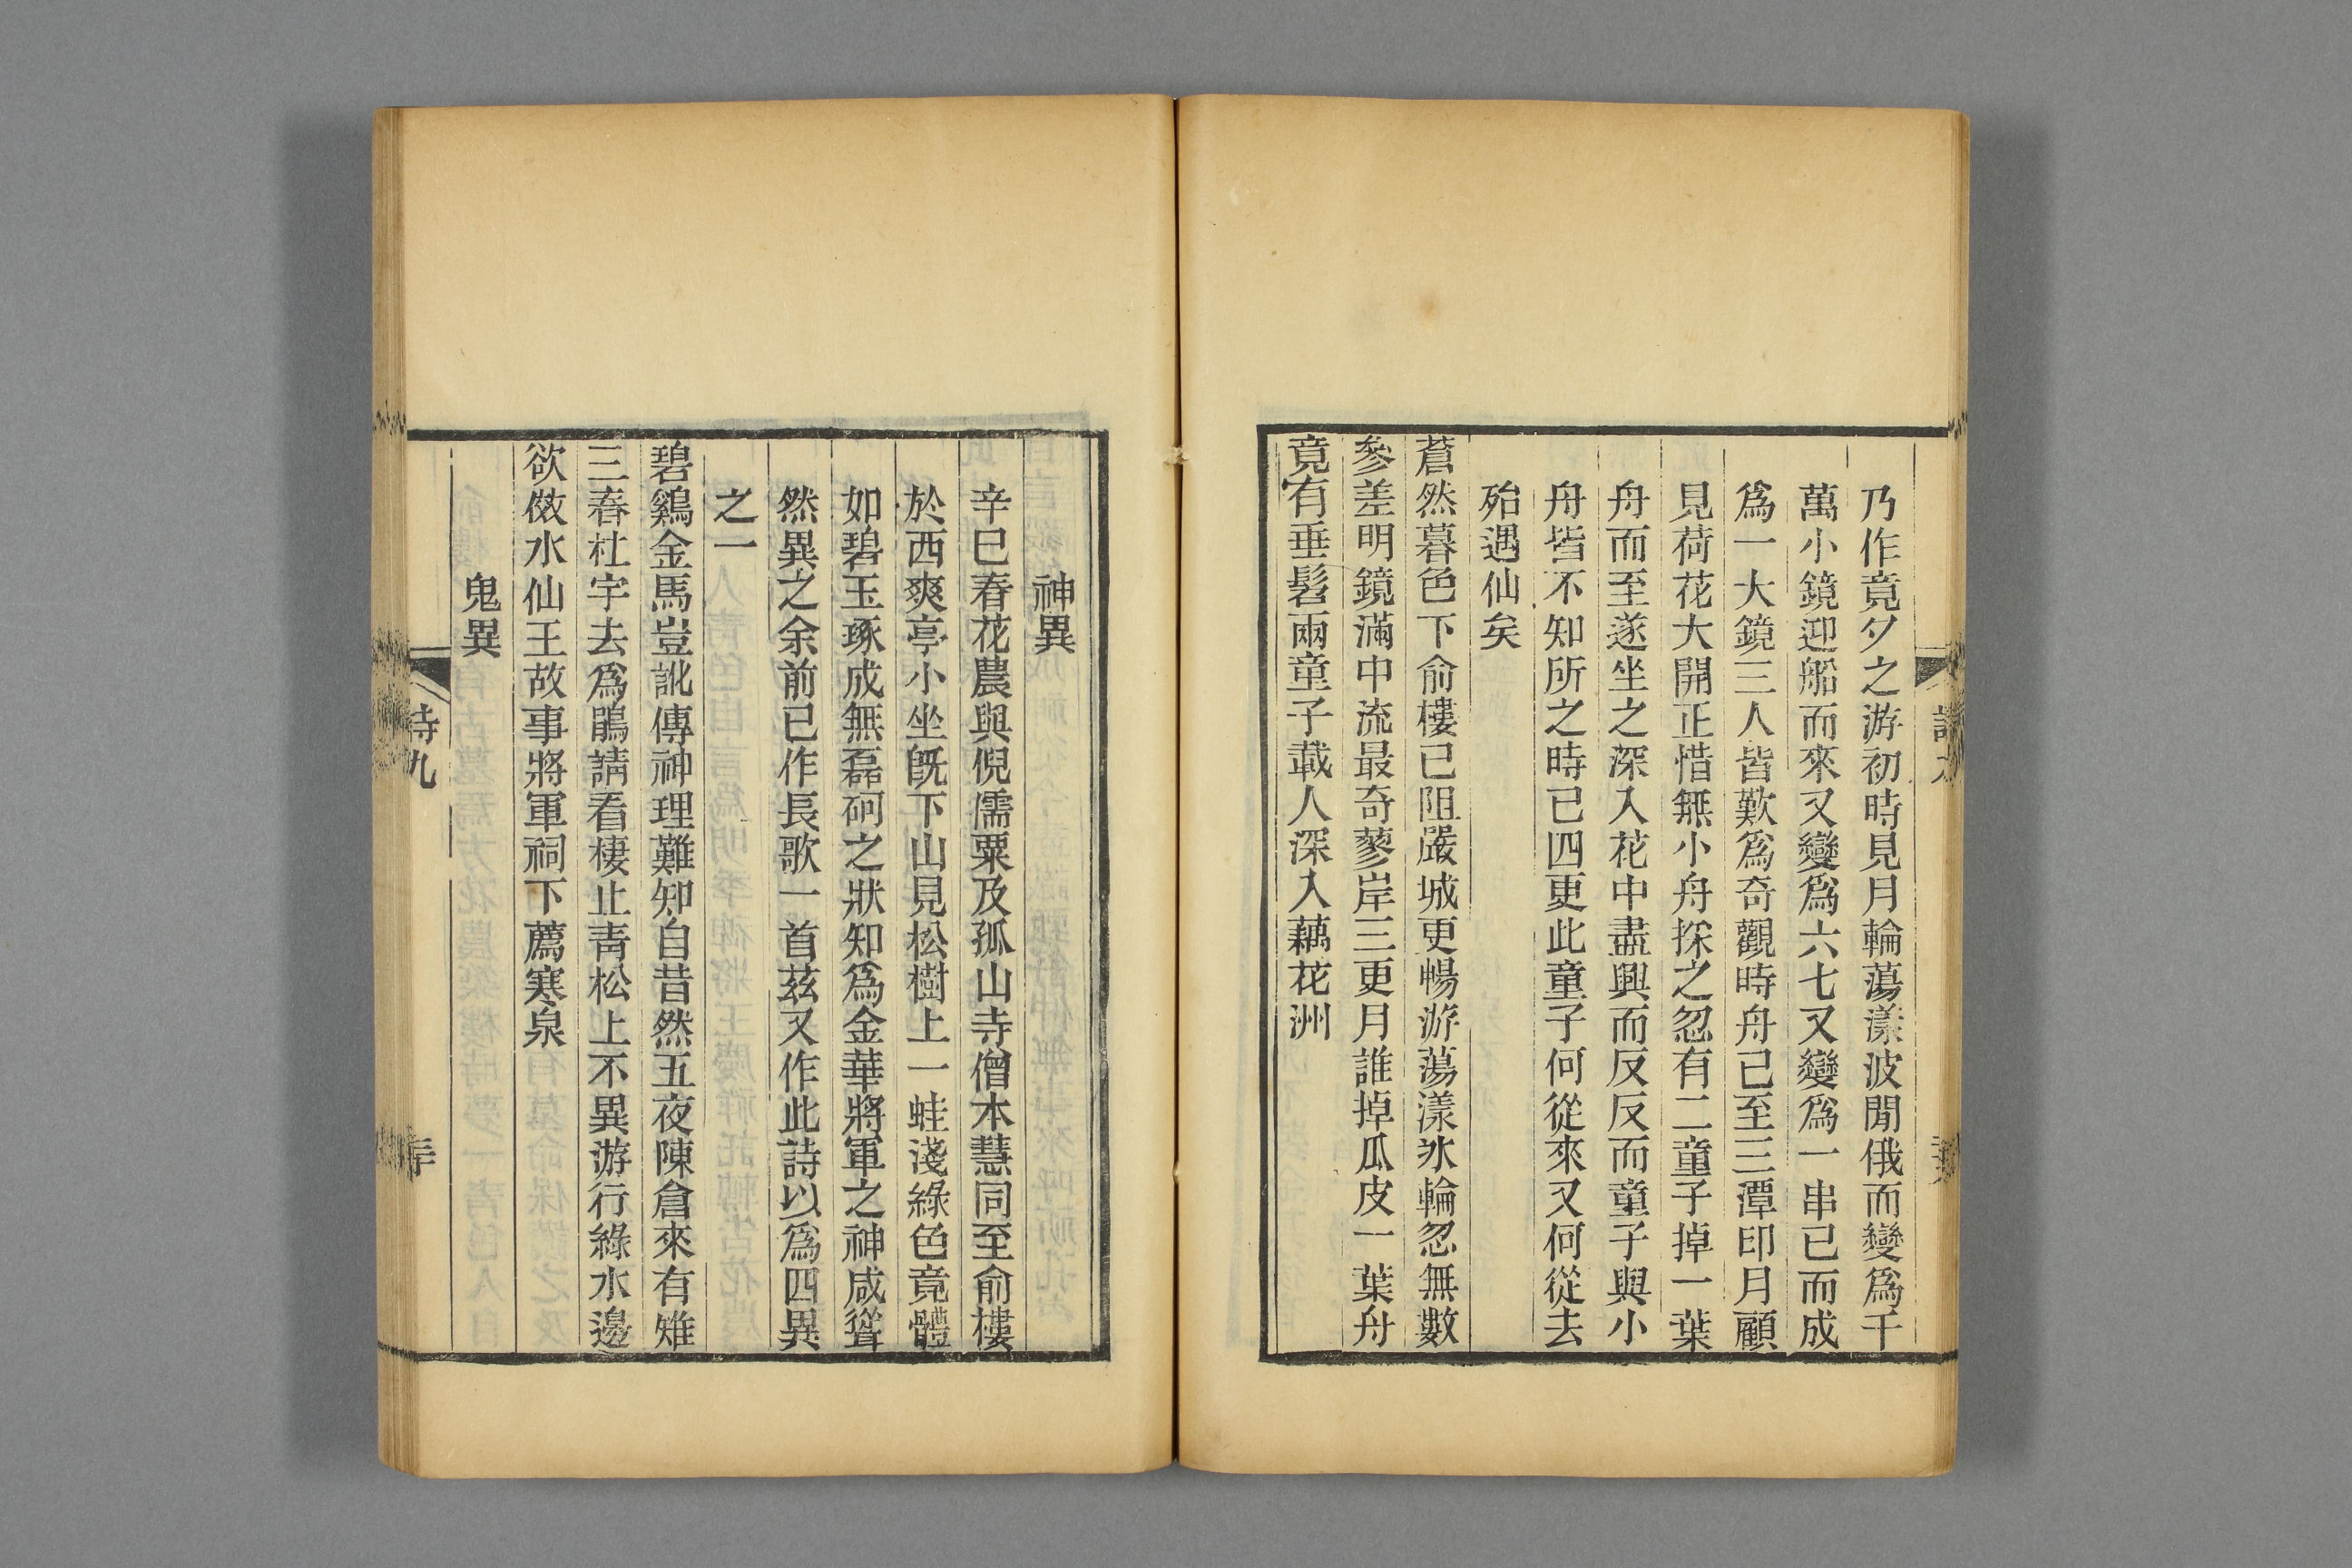 乃作竟夕之游初時見月輪蕩漾波間俄而變爲千
萬小鏡迎船而來又變爲六七又變爲一串已而成
爲一大鏡三人皆歎爲奇觀時舟已至三潭印月顧
見荷花大開正惜無小舟探之忽有二童子掉一葉
舟而至遂坐之深入花中盡興而反反而童子與小
舟皆不知所之時已四更此童子何從來又何從去
殆遇仙矣
蒼然暮色下俞樓已阻嚴城更暢游蕩漾氷輪忽無數
參差明鏡滿中流最奇蓼岸三更月誰掉瓜皮一葉舟
竟有垂髫兩童子載人深入藕花洲
神異
辛巳春花農與倪儒粟及孤山寺僧本慧同至俞樓
於西爽亭小坐旣下山見松樹上一蛙淺綠色竟體
如碧玉琢成無磊砢之狀知爲金華將軍之神咸聳
然異之余前已作長歌一首茲又作此詩以爲四異
之一
碧鷄金馬豈訛傳神理難知自昔然五夜陳倉來有雉
三春杜宇去爲鵑請看棲止靑松上不異游行綠水邊
欲倣水仙王故事將軍祠下薦寒泉
鬼異
詩九